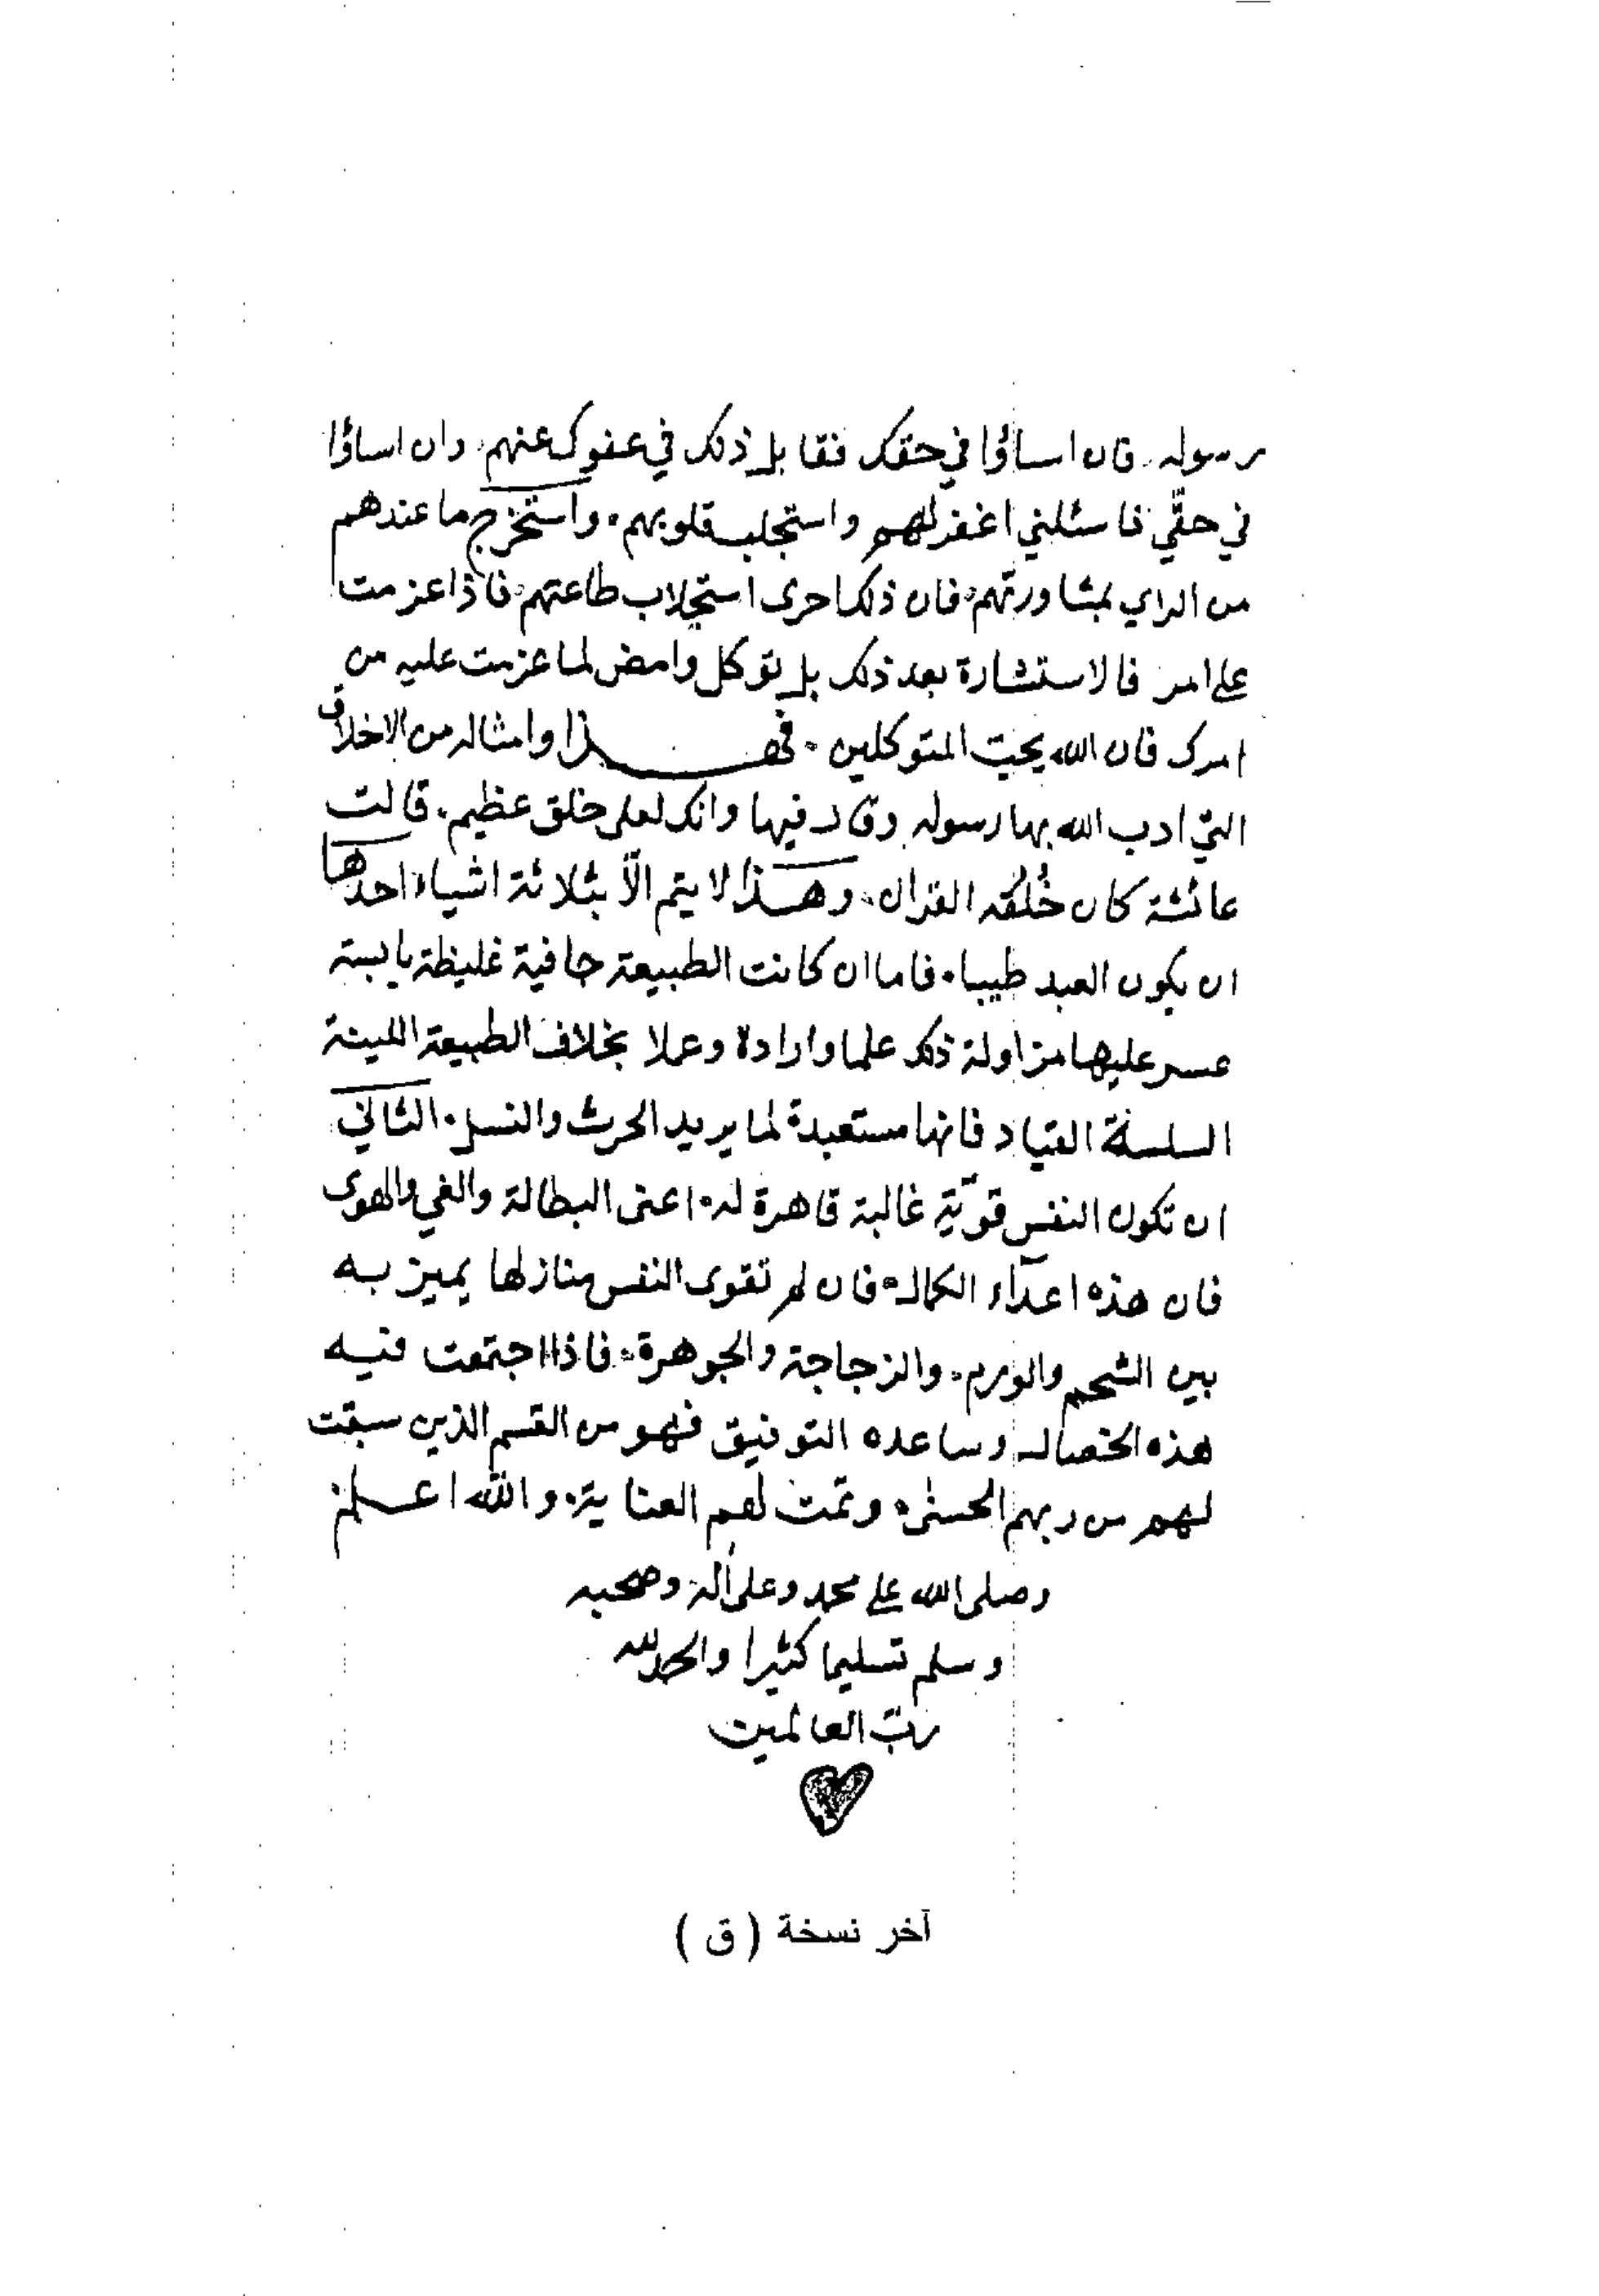 رسوله . فان اساؤا في حقك فقابل ذلك في عفوك عنهم . وان اساؤا
في حقّي فاسئلني اغفر لهم واستجلب قلوبهم . واستخرج ما عندهم
من الراي بمشاورتهم . فان ذلك احرى استجلاب طاعتهم . فاذا عزمت
على امر فالاستشارة بعد ذلك بل توكل وامض لما عزمت عليه من
امرك فان الله يحب المتوكلين . فهذا وامثاله من الاخلاق
التي ادب الله بها رسوله وقال فيها وانك لعلى خلق عظيم . قالت
عائشة كان خُلُقُه القرآن . وهذا لا يتم الّا بثلاثة اشياء احدها
ان يكون العبد طيبا . فاما ان كانت الطبيعة جافية غليظة يابسة
عسر عليها مزاولة ذلك علما وارادة وعملا بخلاف الطبيعة اللينة
السلسة القياد فانها مستعبدة لما يريد الحرث والنسل . الثاني
ان تكون النفس قويّة غالبة قاهرة له . اعنى البطالة والغي والهوى
فان هذه اعدآء الكمال . فان لم تقوى النفس منازلها يميز به
بين الشحم والورم . والزجاجة والجوهرة . فاذا اجتمعت فيه
هذه الخصال وساعده التوفيق فهو من القسم الذين سبقت
لهم من ربهم الحسنى . وتمت لهم العناية . والله اعلم
وصلى الله على محمد وعلى اله وصحبه
وسلم تسليما كثيرا والحمد لله
ربّ العالمين
آخر نسخة ( ق )